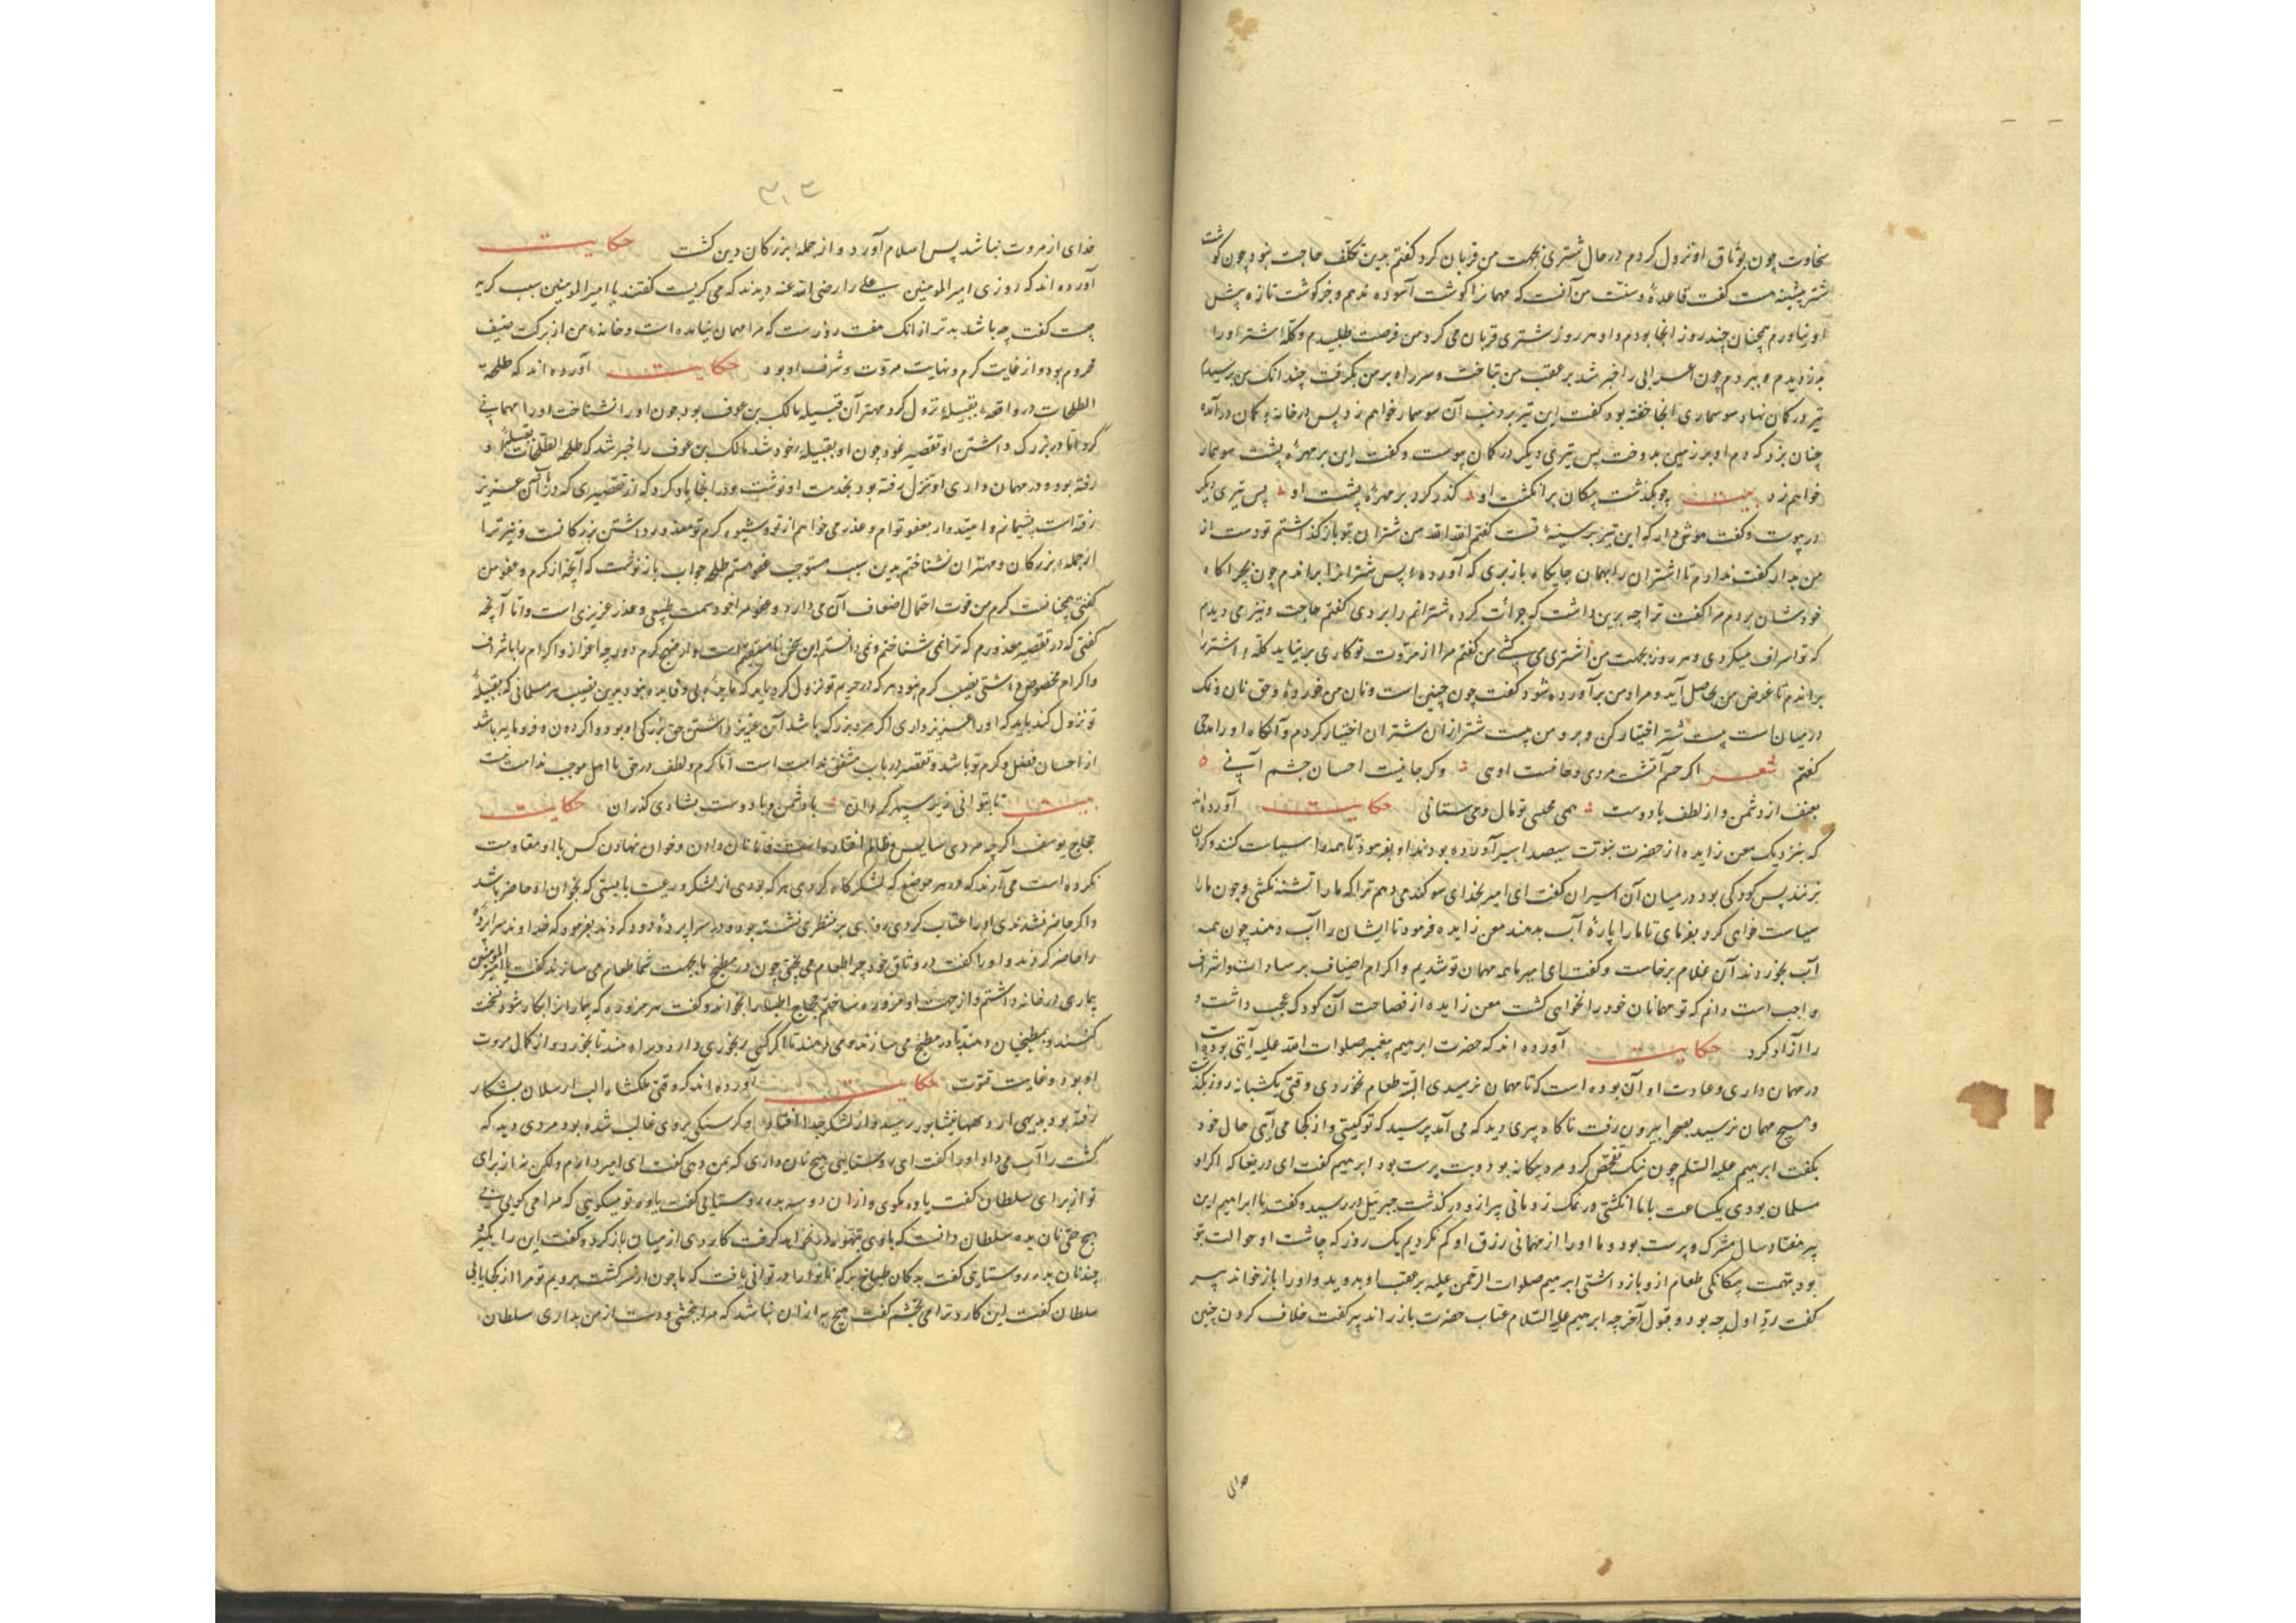 سخاوت چون بوثاق او نزول کردم در حال شتری بجهت من قربان کرد گفتم بدین تکلف حاجت نبود چون گوشت
شتر پیشینه هست گفت قاعده و سنت من آنست که مهمانرا گوشت آسوده ندهم و جز گوشت تازه پیش
او نیاورم همچنان چند روز آنجا بودم و او هر روز شتری قربان می کرد من فرصت طلبیدم و کله اشتر او را
بدزدیدم و ببردم چون اعرابی را خبر شد بر عقب من بتاخت و سر راه بر من بگرفت چندانک بمن برسید
تیر در کمان نهاد سوسماری آنجا خفته بود گفت این تیر بر دنب آن سوسمار خواهم زد پس در خانه کمان در آمد
چنان بزد که دم او بر زمین بدوخت پس تیری دیگر در کمان پیوست و گفت این بر مهره پشت سوسمار
خواهم زد بیت چو بگذشت پیکان بر انگشت او گذر کرد بر مهره پشت او پس تیری دیگر
در پیوست و گفت هوش دار که این تیر بر سینه تست گفتم الله الله من شتران بتو باز گذاشتم تو دست از
من بدار گفت ندارم تا اشتران را بهمان جایگاه باز بری که آورده پس شترانرا براندم چون بچراگاه
خودشان بردم مرا گفت ترا چه برین داشت که جرأت کرده شترانم را بردی گفتم حاجت و نیز می دیدم
که تو اسراف میکردی و هر روز بجهت من اشتری می کشی من گفتم مرا از مروت تو کاری بر نیاید کله اشتر را
براندم تا غرض من بحاصل آید و مراد من بر آورده شود گفت چون چنین است و نان من خورده و حق نان و نمک
در میان است بیست شتر اختیار کن و برو من بیست شتر از آن شتران اختیار کردم و آنگاه او را مدحی
گفتم شعر اگر خشم آتشت مردی و خاست اوی وگر جانیت احسان چشم آبی
بعنف از دشمن و از لطف با دوست همی بخشی تو مال و می ستانی حکایت آورده اند
که بنزدیک معن زایده از حضرت نبوت سیصد اسیر آورده بودند او بفرمود تا همه را سیاست کنند و گردن
بزنند پس کودکی بود در میان آن اسیران گفت ای امیر بخدای سوگند می دهم ترا که ما را تشنه نکشی و چون ما را
سیاست خواهی کرد بفرمای تا ما را پاره آب بدهند معن زایده فرمود تا ایشان را آب دهند چون همه
آب بخوردند آن غلام برخاست و گفت ای امیر ما همه مهمان تو شدیم و اکرام اضیاف بر سادات و اشراف
واجب است دانم که تو مهمانان خود را نخواهی کشت معن زایده از فصاحت آن کودک عجب داشت و
را آزاد کرد حکایت آورده اند که حضرت ابرهیم پیغمبر صلوات الله علیه آیتی بوده است
در مهمان داری و عادت او آن بوده است که تا مهمان نرسیدی البته طعام نخوردی وقتی یکشبانه روز بگذشت
و هیچ مهمان نرسید بصحرا بیرون رفت ناگاه پیری دید که می آمد پرسید که تو کیستی و از کجا می آیی حال خود
بگفت ابرهیم علیه السلم چون نیک تفحص کرد مرد بیگانه بود و بت پرست بود ابرهیم گفت ای دریغا که اگر او
مسلمان بودی یکساعت با ما انگشتی در نمک زدمانی پیر ازو در گذشت جبرئیل در رسید و گفت یا ابراهیم این
پیر هفتاد سال مشرک و بت پرست بود و ما او را از مهمانی رزق او کم نکردیم یک روز که چاشت او حوالت بتو
بود بتهمت بیگانگی طعام ازو باز داشتی ابرهیم صلوات الرحمن علیه بر عقب او بدوید و او را باز خواند پیر
گفت رد اول چه بود و قبول آخر چه ابرهیم علیه السلام عتاب حضرت باز راند پیر گفت خلاف کردن چنین
خدای از مروت نباشد پس اسلام آورد و از جمله بزرگان دین گشت حکایت
آورده اند که روزی امیر المومنین علی را رضی الله عنه دیدند که می گریست گفتند یا امیر المومنین سبب گریه
چیست گفت چه باشد بدتر از انک هفت روزست که مرا مهمان نیامده است و خانه من از برکت ضیف
محروم بود و از غایت کرم و نهایت مروت و شرف او بود حکایت آورده اند که طلحة
الطلحات در واقعه بقبیله نزول کرد مهتر آن قبیله مالک بن عوف بود چون او را نشناخت او را مهمانی
کرد اما در بزرگ داشتن او تقصیر نمود چون او بقبیله خود شد مالک بن عوف را خبر شد که طلحة الطلحات بقبیله او
رفته بود و در مهمان داری او تنزل رفته بود بخدمت او نوشت و در آنجا یاد کرد که از تقصیری که در آن عزیز
رفته است پشیمانم و امیدوار بعفو توام و عذر می خواهم از تو و شیوه کرم تو معذور داشتن بزرگانست و نیز ترا
از جمله بزرگان و مهتران نشناختم بدین سبب مستوجب عفو هستم طلحه جواب باز نوشت که آنچه از کرم و عفو من
گفتی همچنانست کرم من قوت احتمال اضعاف آن می دارد و عفو مرا خود سمت طبیعی و عذر عزیزی است و اما آنچه
گفتی که در تقصیر معذورم که ترا نمی شناختم و نمی دانستم این سخن نا مستقیم است و از منهج کرم دور چه اعزاز و اکرام را با شراف
و اکرام مخصوص داشتن نصیب کرم نبود هر که در حریم تو نزول کرد باید که بی فایده نبود برین نسبت هر مسلمانی که بقبیله
تو نزول کند باید که او را عزیز داری اگر مرد بزرگ باشد آن عزیز داشتن حق بزرگی او بود و اگر دون و فرومایه باشد
از احسان فضل و کرم تو باشد و تقصیر در باب مستحق ندامت است اما کرم و لطف در حق نا اهل موجب ندامت نیست
بیت تا بتوانی زیر سپهر گردان با دشمن و با دوست بشادی گذران حکایت
حجاج یوسف اگر چه مردی سایس و ظالم افتاده است فاما نان دادن و خوان نهادن کس با او مقاومت
نکرده است می آرند که در هر موضع که لشکرگاه کردی هر که بودی از لشکر و رعیت بایستی که بخوان او حاضر باشد
و اگر حاضر نشدندی او را عتاب کردی روزی بر منظری نشسته بود و در سراپرده دود کردند بفرمود که خداوند سراپرده
را حاضر کردند و او را گفت در وثاق خود چرا طعام می پختی چون در مطبخ ما بجهت شما طعام می سازند گفت یا امیر المومنین
بیماری در خانه داشتم و از جهت او مزوره ساختم حجاج اطبا را بخواند و گفت هر مزوره که بیمار را بکار شود نسخت
کنند و بمطبخیان دهند تا در مطبخ می سازند و می نهند تا اگر کسی رنجوری دارد و برا دهند تا بخورد و از کمال مروت
او بود و غایت فتوت حکایت آورده اند که وقتی ملکشاه الب ارسلان بشکار
رفته بود بدیهی از دیهها نیشابور رسید و از لشکر جدا افتاد و گرسنگی بر وی غالب شده بود مردی دید که
کشت را آب می داد او را گفت ای روستایی هیچ نان داری که بمن دهی گفت ای امیر دارم ولکن نه از برای
تو از برای سلطان گفت یاوه مگوی و از آن دو سه بده روستایی گفت یاوه تو میگویی که مرا می گویی بی
هیچ حقی نان بده سلطان دانست که با وی تهور در نخواهد گرفت کاردی از میان باز کرد و گفت این را بگیر
چند نان بده روستایی گفت بدکان طباخ بر که نانوا را در توانی یافت که ما چون از سر کشت برویم تو ما را از کجا یابی
سلطان گفت این کارد ترا می بخشم گفت هیچ به از آن نباشد که مرا بخشی و دست از من بداری سلطان